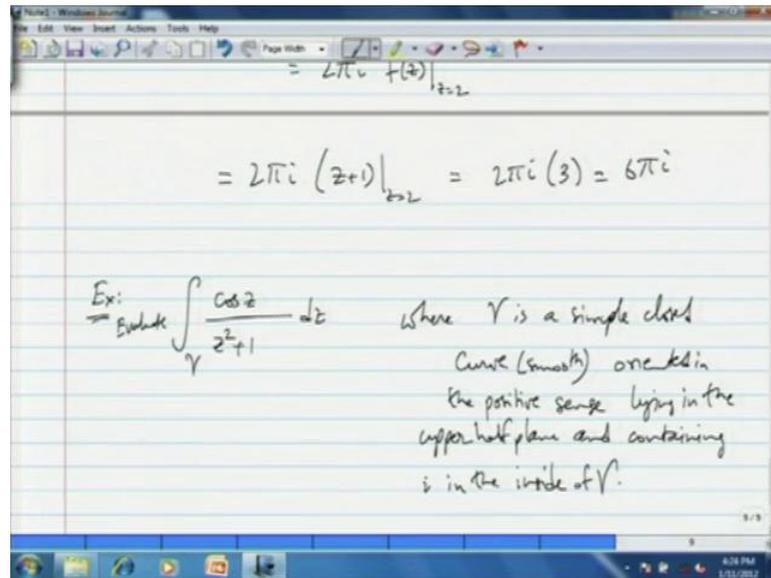 Note1 - Windows Journal
File Edit View Insert Actions Tools Help
Page Width
= 2πi f(z)|z=2
= 2πi (z+1)|z=2 = 2πi (3) = 6πi
Ex: Evaluate ∫γ cos z / z²+1 dz where γ is a simple closed
curve (smooth) oriented in
the positive sense lying in the
upper half plane and containing
i in the inside of γ.
5/5
9
4:24 PM
1/11/2012